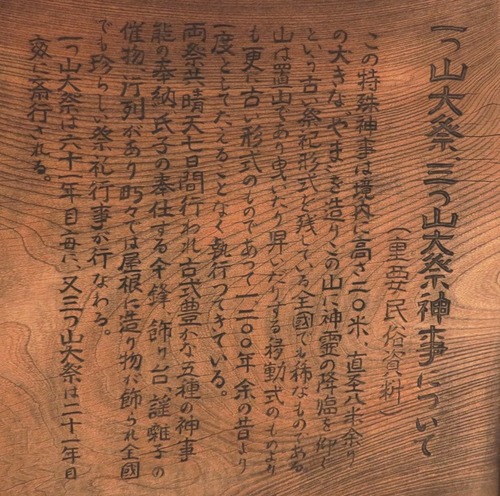 一つ山大祭、三つ山大祭神事について
(重要民俗資料)
この特殊神事は境内に高さ二〇米、直径八米余り
の大きなやまを造りこの山に神霊の降臨を仰ぐ
という古い祭祀形式を残している全国でも稀なものである
山は置山であり曳いたり舁いだりする移動式のものより
も更に古い形式のものであって一二〇〇年余の昔より
一度としてたえることなく執行ってきている。
両祭共晴天七日間行われ古式豊かな五種の神事
能の奉納氏子の奉仕する傘鋒、飾り台、謡、囃子の
催物、行列があり町々では屋根に造り物が飾られ全国
でも珍らしい祭礼行事が行なわる。
一つ山大祭は六十一年目毎に、又三つ山大祭は二十一年目
毎に斎行される。